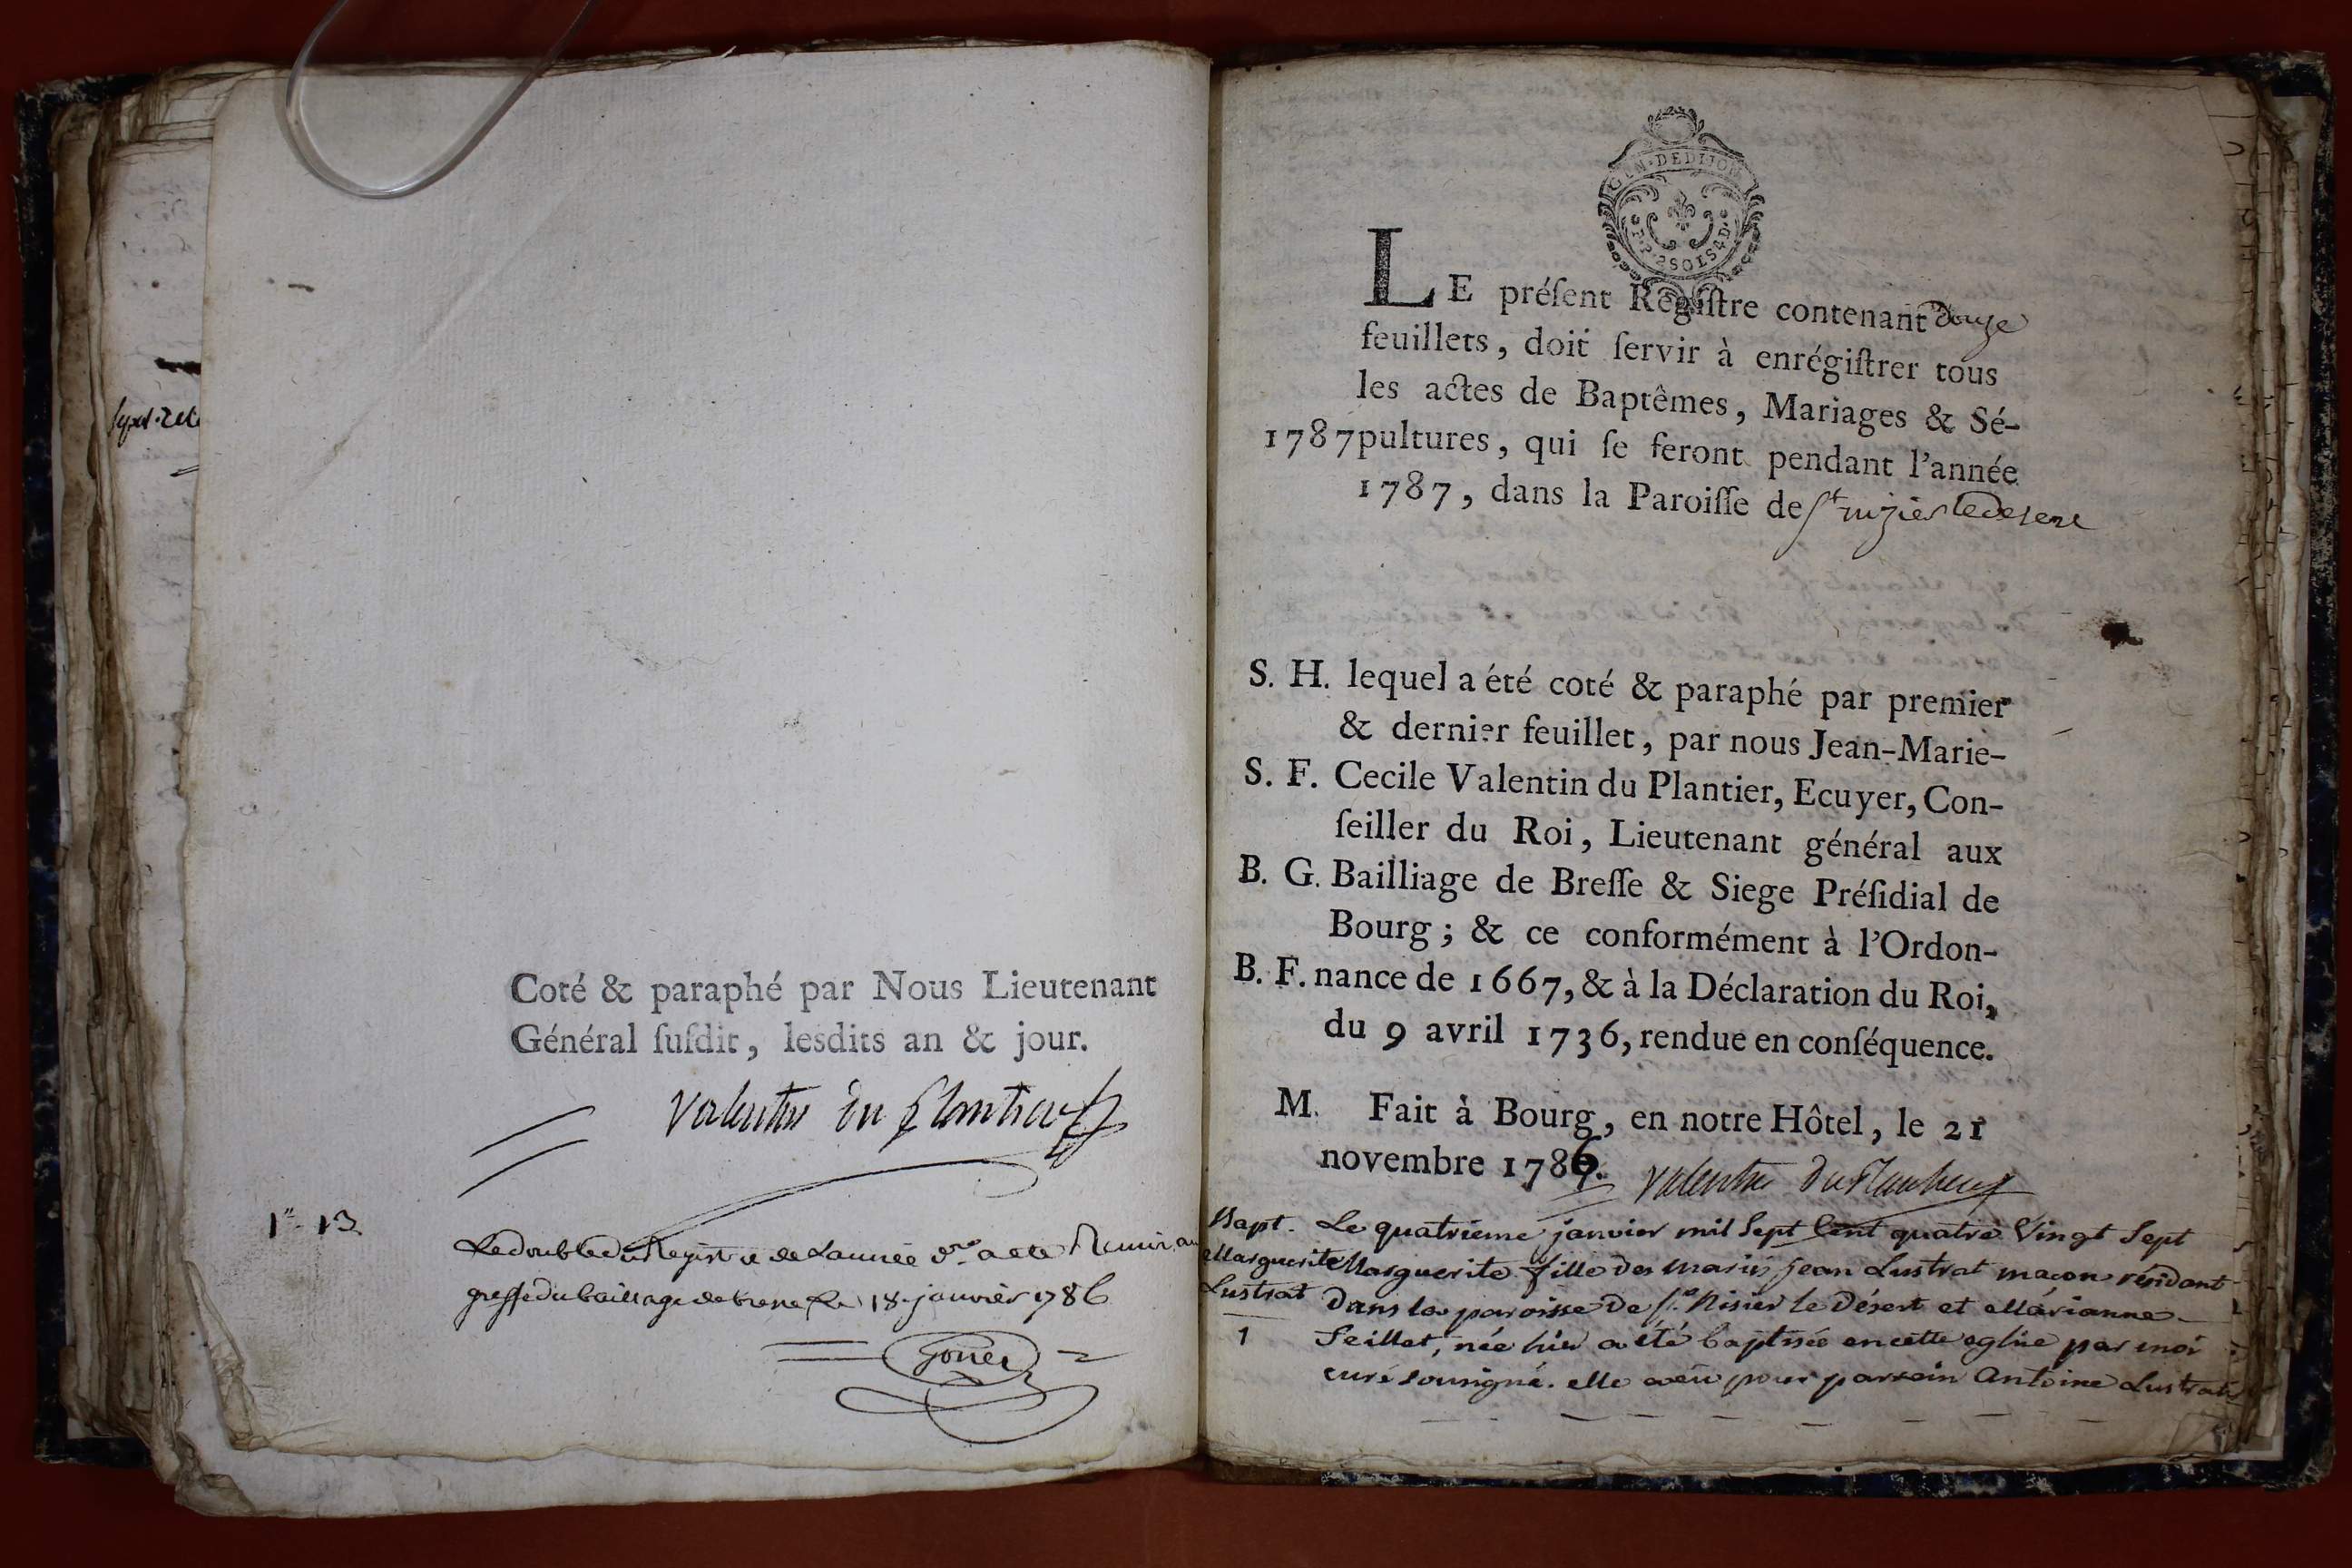 Coté & paraphé par Nous Lieutenant
Général suſdit, lesdits an & jour.
Valentin du Plantier
1re 13
Le double du Registre de L'année dre a été Remis au
greffe du bailliage de bresse le 18 janvier 1786
GEN. DE DIJON
2 SOLS 4 D.
LE préſent Regiſtre contenant douze
feuillets, doit ſervir à enrégiſtrer tous
les actes de Baptêmes, Mariages & Sé-
1787 pultures, qui ſe feront pendant l'année
1787, dans la Paroiſſe de St nizier le desert
S. H. lequel a été coté & paraphé par premier
& dernier feuillet, par nous Jean-Marie-
S. F. Cecile Valentin du Plantier, Ecuyer, Con-
ſeiller du Roi, Lieutenant général aux
B. G. Bailliage de Breſſe & Siege Préſidial de
Bourg ; & ce conformément à l'Ordon-
B. F. nance de 1667, & à la Déclaration du Roi,
du 9 avril 1736, rendue en conſéquence.
M. Fait à Bourg, en notre Hôtel, le 21
novembre 1786. Valentin du Plantier
Bapt. Le quatrieme janvier mil Sept Cent quatre Vingt Sept
Marguerite Marguerite fille des mariés jean Lustrat maçon résidant
Lustrat Dans la paroisse de St Nisier le Désert et Marianne
1 Feillet, née hier a été baptisée en cette eglise par moi
curé sousigné. elle a eü pour parrain Antoine Lustrat